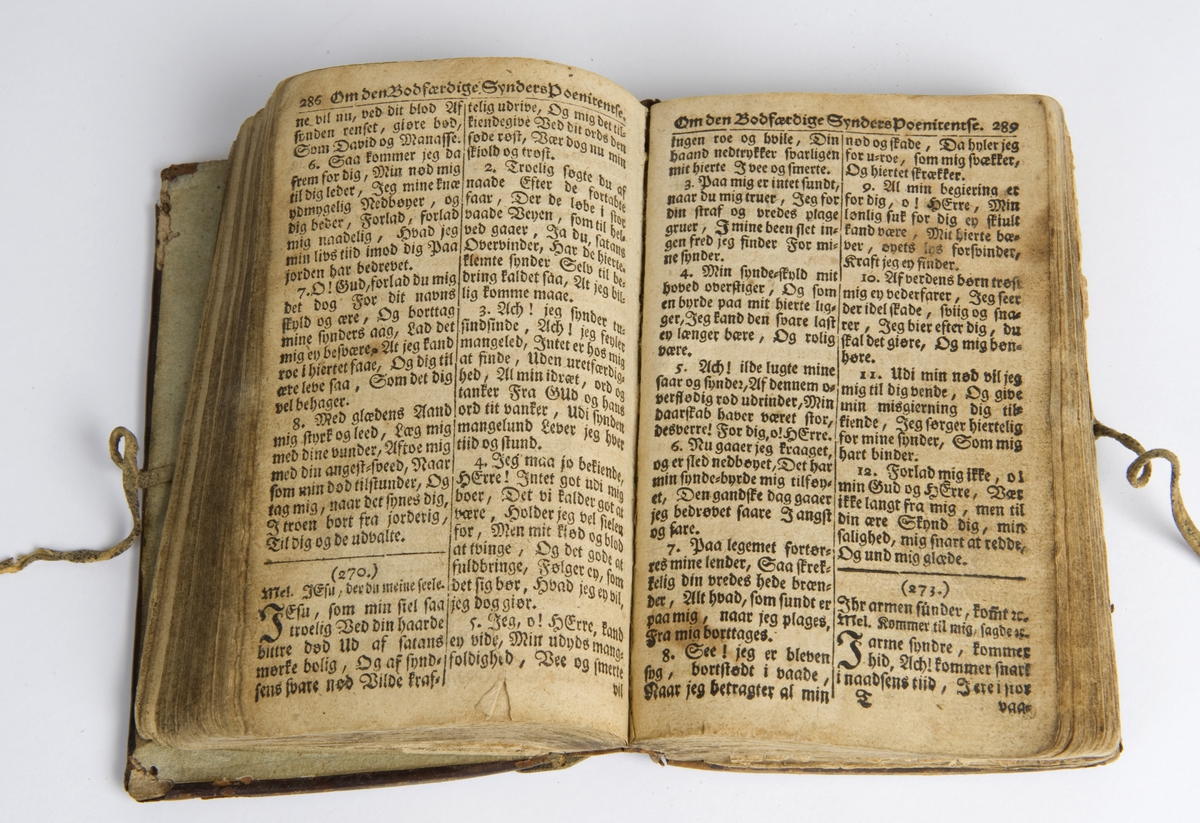 286 Om den Bodfærdige Synders Poenitentse.
ne vil nu, ved dit blod Af
synden renset, giøre bod,
Som David og Manasse.
6. Saa kommer jeg da
frem for dig, Min nød mig
til dig leder, Jeg mine knæ
ydmygelig Nedbøyer, og
dig beder, Forlad, forlad
mig naadelig, Hvad jeg
min livs tiid imod dig Paa
jorden har bedrevet.
7. O! Gud, forlad du mig
det dog For dit navns
skyld og ære, Og borttag
mine synders aag, Lad det
mig ey besvære, At jeg kand
roe i hiertet faae, Og dig til
ære leve saa, Som det dig
vel behager.
8. Med glædens Aand
mig styrk og leed, Læg mig
med dine vunder, Aftoe mig
med din angest-sveed, Naar
som min død tilstunder, Og
tag mig, naar det synes dig,
I troen bort fra jorderig,
Til dig og de udvalte.
(270.)
Mel. JEsu, der du meine seele.
JEsu, som min siel saa
troelig Ved din haarde
bittre død Ud af satans
mørke bolig, Og af synd-
sens svare nød Vilde kraf-
telig udrive, Og mig det til-
kiendegive Ved dit ords den
søde røst, Vær dog nu min
skiold og trøst.
2. Troelig søgte du af
naade Efter de fortabte
faar, Der de løbe i stor
vaade Veyen, som til hel-
ved gaaer, Ja du, satans
Overvinder, Har de hierte-
klemte synder Selv til be-
dring kaldet saa, At jeg bil-
lig komme maae.
3. Ach! jeg synder tu-
sindfinde, Ach! jeg feyler
mangeled, Intet er hos mig
at finde, Uden uretfærdig-
hed, Al min idræt, ord og
tanker Fra GUd og hans
ord tit vanker, Udi synden
mangelund Lever jeg hver
tiid og stund.
4. Jeg maa jo bekiende,
HErre! Intet got udi mig
boer, Det vi kalder got at
være, Holder jeg vel sielen
for, Men mit kiød og blod
at tvinge, Og det gode at
fuldbringe, Følger ey, som
det sig bør, Hvad jeg ey vil,
jeg dog giør.
5. Jeg, o! HErre, kand
ey vide, Min udyds mang-
foldighed, Vee og smerte
vil
Om den Bodfærdige Synders Poenitentse. 289
ingen roe og hvile, Din
haand nedtrykker svarligen
mit hierte J vee og smerte.
3. Paa mig er intet sundt,
naar du mig truer, Jeg for
din straf og vredes plage
gruer, J mine been slet in-
gen fred jeg finder For mi-
ne synder.
4. Min synde-skyld mit
hoved overstiger, Og som
en byrde paa mit hierte lig-
ger, Jeg kand den svare last
ey længer bære, Og rolig
være.
5. Ach! ilde lugte mine
saar og synder, Af dennem o-
verflødig rod udrinder, Min
daarskab haver været stor,
desverre! For dig, o! HErre.
6. Nu gaaer jeg kraaget,
og er sled nedbøyet, Det har
min synde-byrde mig tilføy-
et, Den gandske dag gaaer
jeg bedrøvet saare J angst
og fare.
7. Paa legemet fortør-
res mine lender, Saa skrek-
kelig din vredes hede bræn-
der, Alt hvad, som sundt er
paa mig, naar jeg plages,
Fra mig borttages.
8. See! jeg er bleven
syg, bortstødt i vaade,
Naar jeg betragter al min
nød og skade, Da hyler jeg
for u-roe, som mig svækker,
Og hiertet skrækker.
9. Al min begiering er
for dig, o! HErre, Min
lønlig suk for dig ey skiult
kand være, Mit hierte bæ-
ver, øyets lys forsvinder,
Kraft jeg ey finder.
10. Af verdens børn trøst
mig ey vederfarer, Jeg seer
der idel skade, sviig og sna-
rer, Jeg bier efter dig, du
skal det giøre, Og mig bøn-
høre.
11. Udi min nød vil jeg
mig til dig vende, Og give
min misgierning dig til-
kiende, Jeg sørger hiertelig
for mine synder, Som mig
hart binder.
12. Forlad mig ikke, o!
min Gud og HErre, Vær
ikke langt fra mig, men til
din ære Skynd dig, min
salighed, mig snart at redde,
Og und mig glæde.
(273.)
Ihr armen sünder, komt ꝛc.
Mel. Kommer til mig, sagde ꝛc.
I arme syndre, kommer
hid, Ach! kommer snart
i naadsens tiid, J ere i stor
T
vaa-